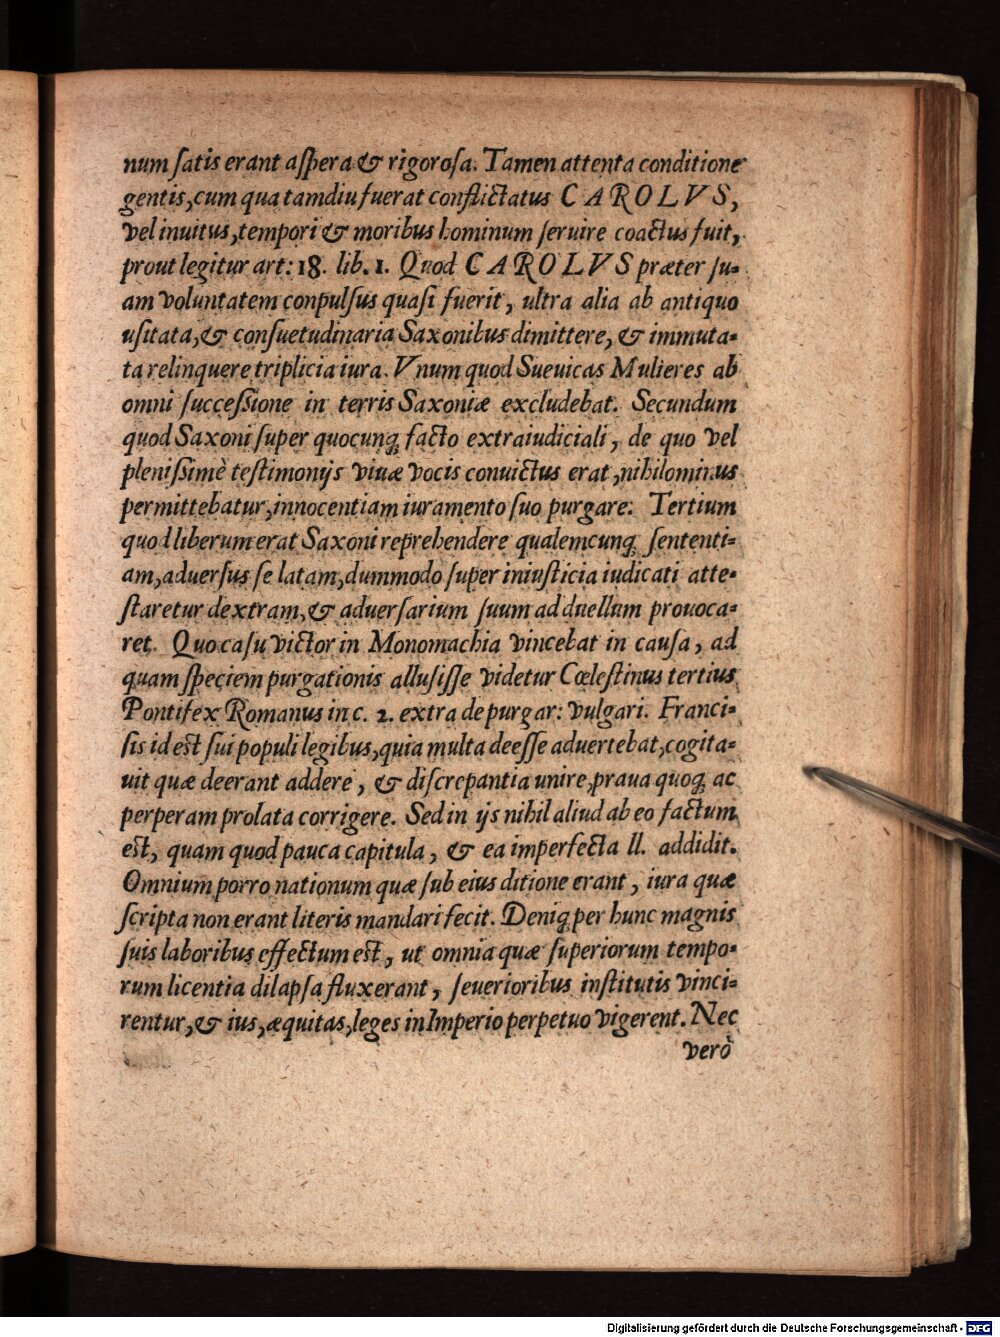 num ſatis erant aſpera & rigoroſa. Tamen attenta conditione
gentis, cum qua tamdiu fuerat conflictatus CAROLVS,
vel inuitus, tempori & moribus hominum ſeruire coactus fuit,
prout legitur art: 18. lib. 1. Quod CAROLVS præter ſu-
am voluntatem conpulſus quaſi fuerit, ultra alia ab antiquo
uſitata, & conſuetudinaria Saxonibus dimittere, & immuta-
ta relinquere triplicia iura. Vnum quod Sueuicas Mulieres ab
omni ſucceſsione in terris Saxoniæ excludebat. Secundum
quod Saxoni ſuper quocunq; facto extraiudiciali, de quo vel
pleniſsimè teſtimonijs viuæ vocis conuictus erat, nihilominus
permittebatur, innocentiam iuramento ſuo purgare: Tertium
quod liberum erat Saxoni reprehendere qualemcunq; ſententi-
am, aduerſus ſe latam, dummodo ſuper iniuſticia iudicati atte-
ſtaretur dextram, & aduerſarium ſuum ad duellum prouoca-
ret. Quo caſu victor in Monomachia vincebat in cauſa, ad
quam ſpeciem purgationis alluſiſſe videtur Cœleſtinus tertius
Pontifex Romanus in c. 2. extra de purgar: vulgari. Franci-
ſis id eſt ſui populi legibus, quia multa deeſſe aduertebat, cogita-
uit quæ deerant addere, & diſcrepantia unire, praua quoq; ac
perperam prolata corrigere. Sed in ijs nihil aliud ab eo factum
eſt, quam quod pauca capitula, & ea imperfecta ll. addidit.
Omnium porro nationum quæ ſub eius ditione erant, iura quæ
ſcripta non erant literis mandari fecit. Deniq; per hunc magnis
ſuis laboribus effectum eſt, ut omnia quæ ſuperiorum tempo-
rum licentia dilapſa fluxerant, ſeuerioribus inſtitutis vinci-
rentur, & ius, æquitas, leges in Imperio perpetuo vigerent. Nec
verò
Digitalisierung gefördert durch die Deutsche Forschungsgemeinschaft - DFG